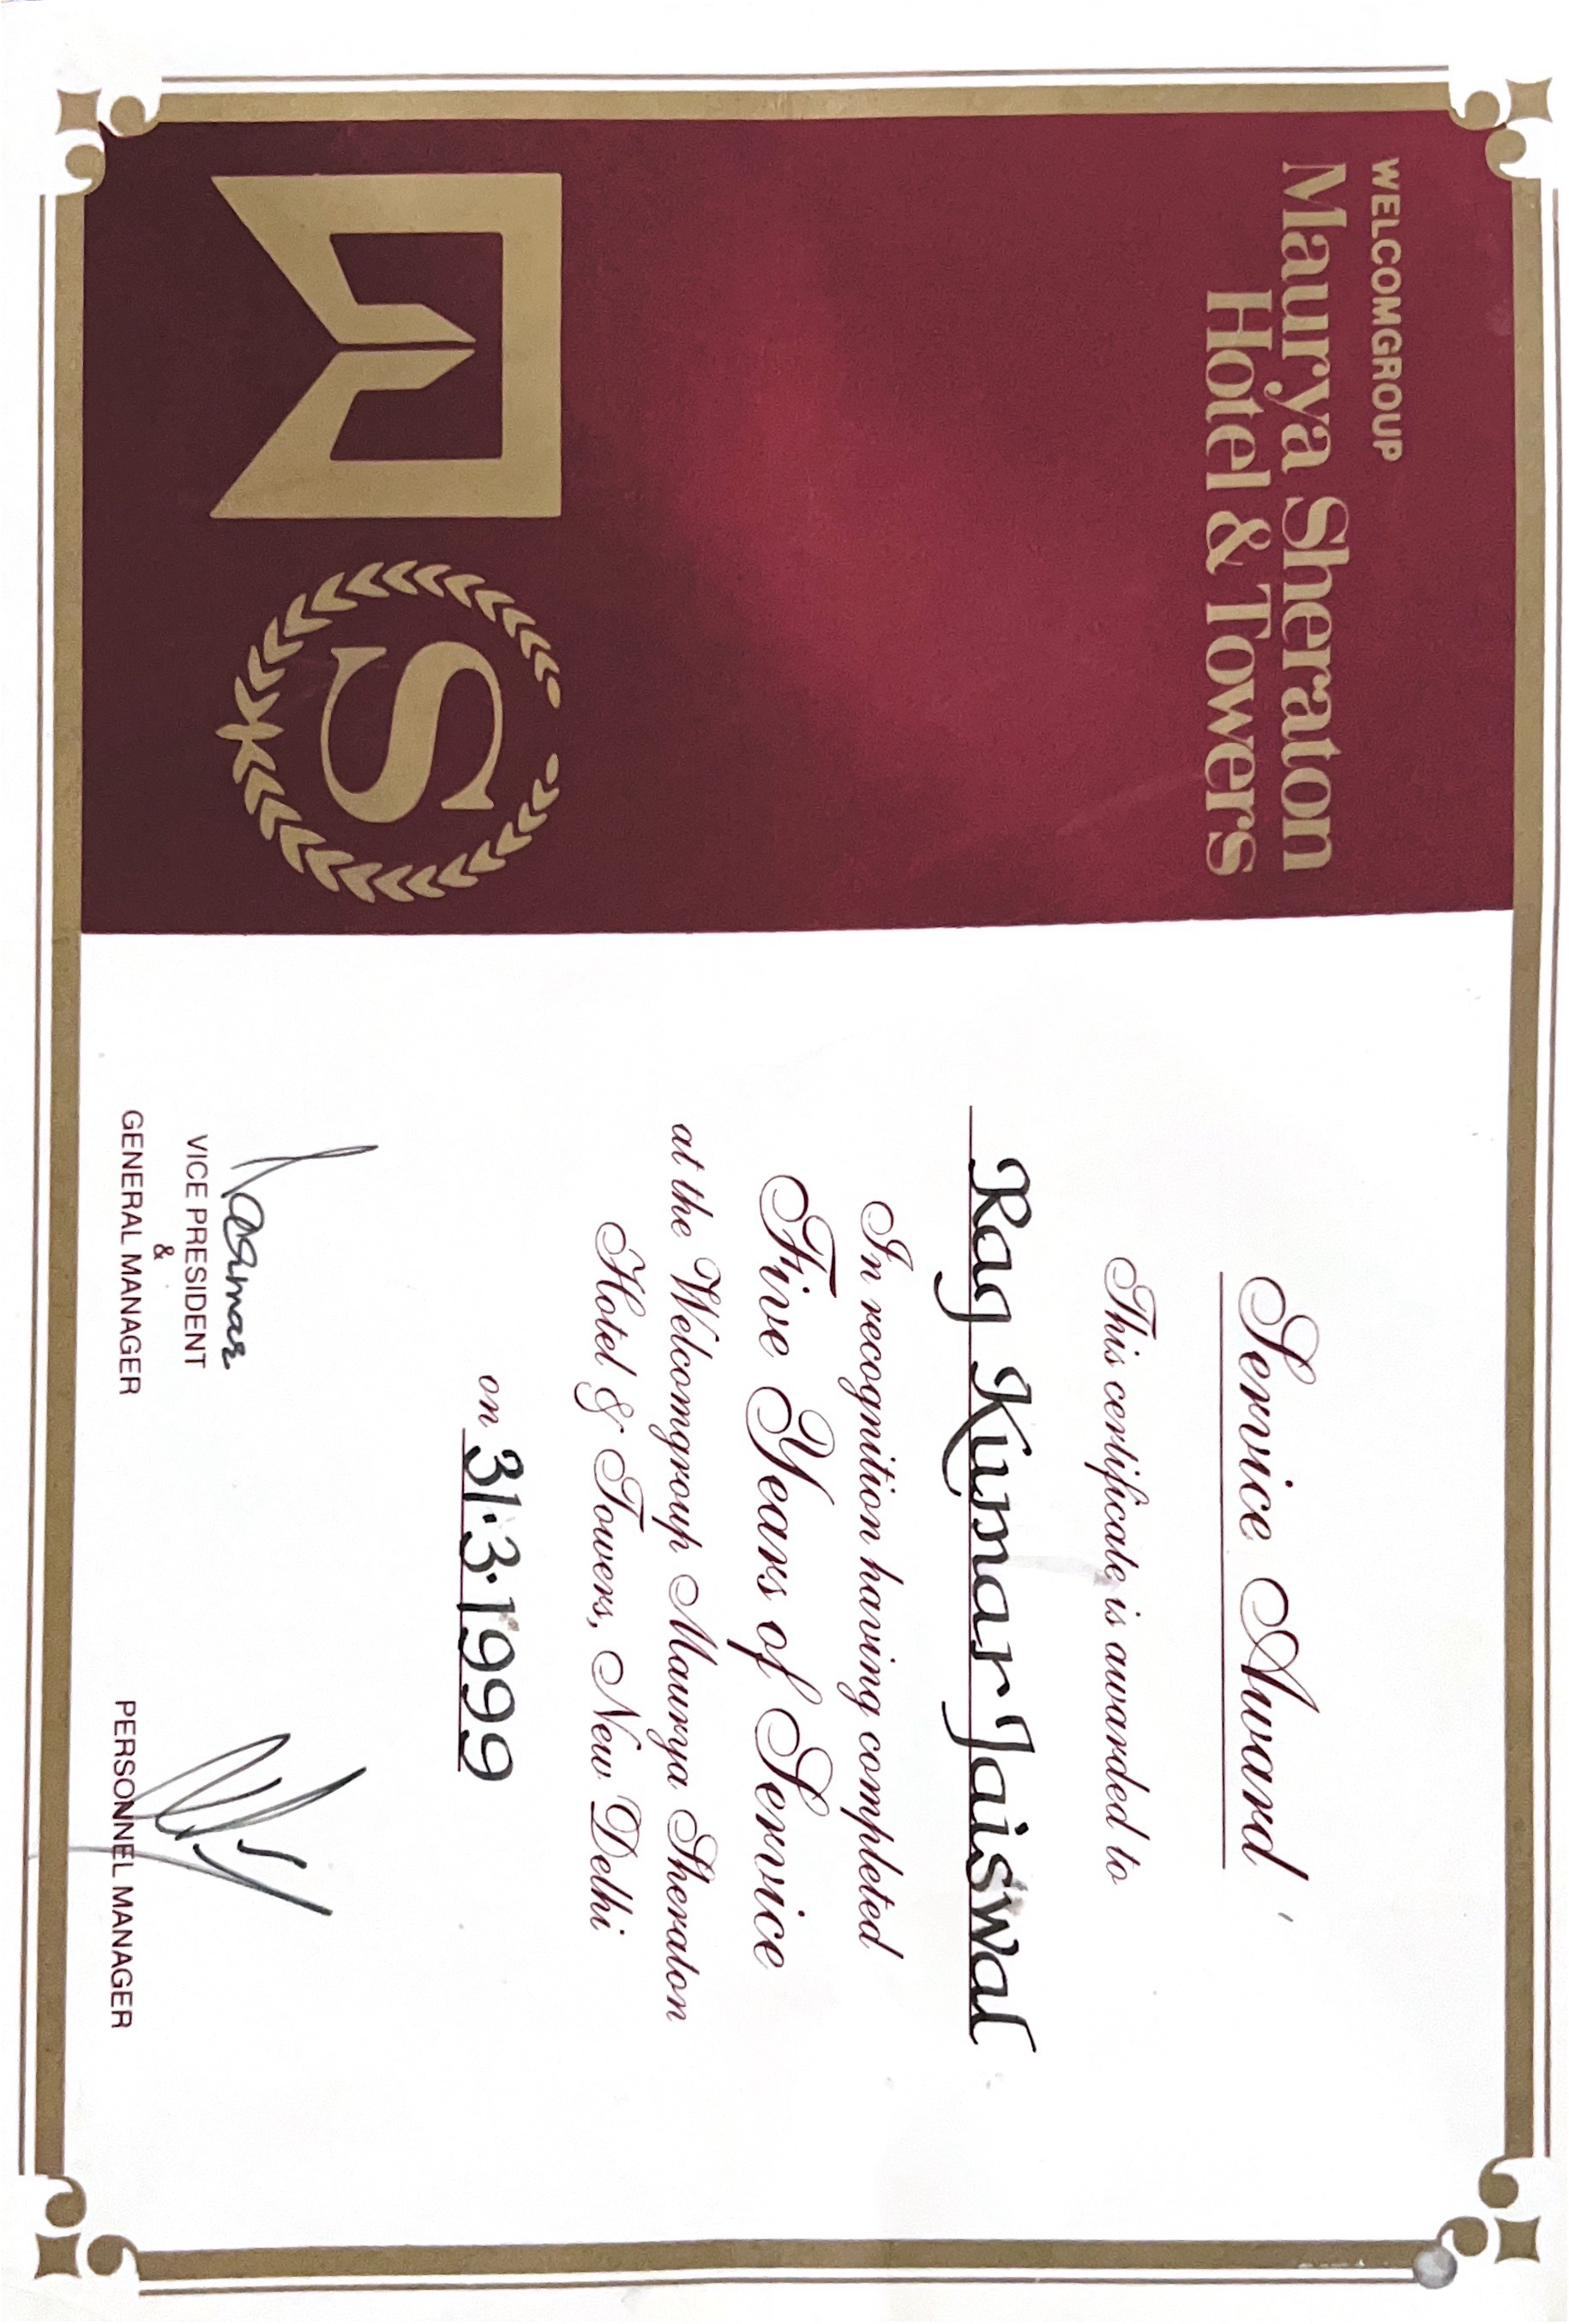 WELCOMGROUP
Maurya Sheraton
Hotel & Towers
S
Service Award
This certificate is awarded to
Raj Kumar Jaiswal
In recognition having completed
Five Years of Service
at the Welcomgroup Maurya Sheraton
Hotel & Towers, New Delhi
on 31.3.1999
VICE PRESIDENT
&
GENERAL MANAGER
PERSONNEL MANAGER